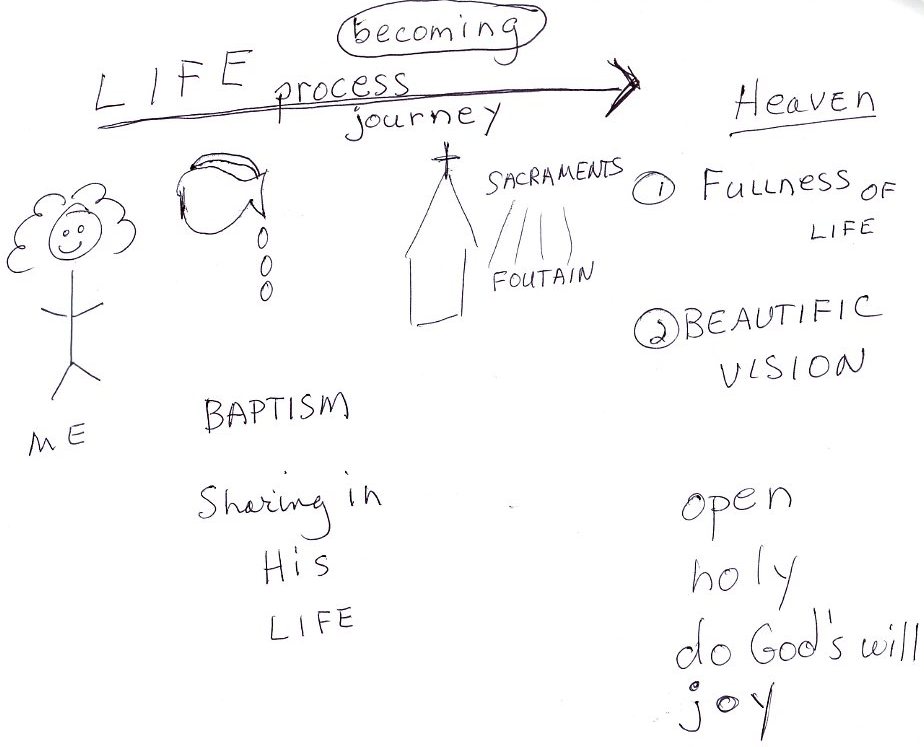 becoming
LIFE process
journey
Heaven
SACRAMENTS
FOUTAIN
① FULLNESS OF
LIFE
② BEAUTIFIC
VISION
ME
BAPTISM
Sharing in
His
LIFE
open
holy
do God's will
joy